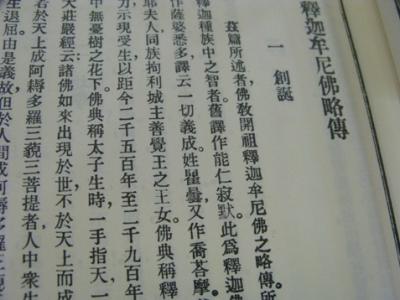 釋迦牟尼佛略傳
一 創誕
茲篇所述者,佛教開祖釋迦牟尼佛之略傳。所
釋迦種族中之智者。舊譯作能仁寂默。此爲釋迦佛
作薩婆悉多。譯云一切義成。姓瞿曇。又作喬荅摩。
耶夫人。同族拘利城主善覺王之王女。佛典稱釋
力示現受生。以距今二千五百年至二千九百年
中無憂樹之花下。佛典稱太子生時。一手指天。一
大莊嚴經云。諸佛如來出現於世。不於天上而成
若於天上成阿耨多羅三藐三菩提者。人中衆生
生退屈。由是義故。但於人間成阿耨多羅三